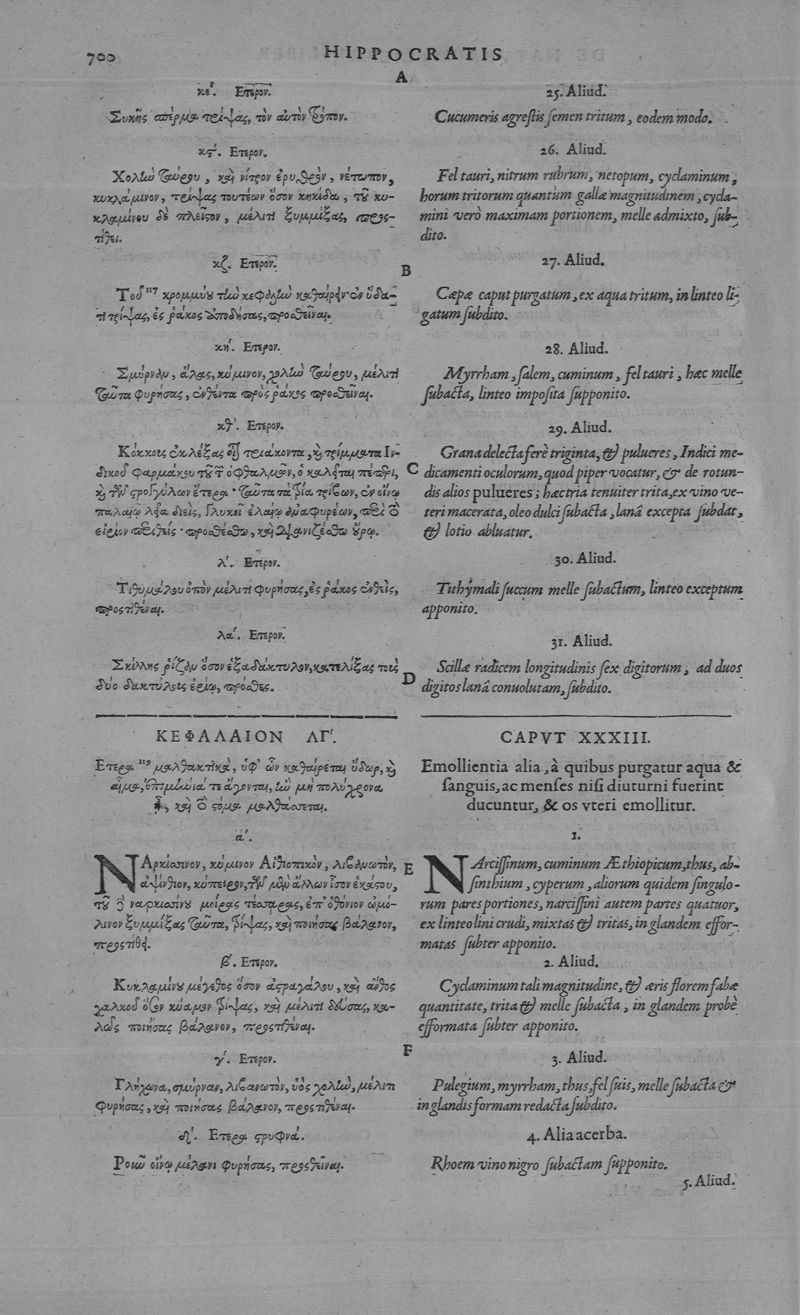 700
HIPPOCRATIS
A
κέ. Ετερον.
Συκῆς σπέρμα τρίψας, τὸν αὐτὸν τρόπον.
κϛ. Ετερον.
Χολὴν ταύρου, καὶ νίτρον ἐρυθρὸν, νέτωπον,
κυκλάμινον, τρίψας τουτέων ὅσον κηκίδα, τοῦ κυ-
κλαμίνου δὲ πλεῖστον, μέλιτι ξυμμίξας, προς-
τίθει.
κζ. Ετερον.
B
Τοῦ 117 κρομμύου τὴν κεφαλὴν καθαίρειν· ἐν ὕδα-
τι τρίψας, ἐς ῥάκος ἀποδήσας, προσθεῖναι.
κή. Ετερον.
Σμύρναν, ἅλας, κύμινον, χολὴν ταύρου, μέλιτι
ταῦτα φυρήσας, ἐνθέντα πρὸς ῥάκος προσθεῖναι.
κθ. Ετερον.
Κόκκους ἐκλέξας τριάκοντα, καὶ τρίμματα Ιν-
δικοῦ φαρμάκου τοῦ τῶν ὀφθαλμῶν, ὃ καλεῖται πέπερι,
C
καὶ τῶν στρογγύλων ἕτερα· ταῦτα τὰ τρία τρίβων, ἐν οἴνῳ
παλαιῷ λεῖα διεὶς, γλυκεῖ ἐλαίῳ
εἰρίον περιθείς· προσθέσθω, καὶ οὔρῳ.
λ. Ετερον.
Τιθυμάλου ὀπὸν μέλιτι φυρήσας, ἐς ῥάκος ἐνθεὶς,
προστιθέναι.
λα. Ετερον.
Σκίλλης ῥίζαν ὅσον ἑξαδάκτυλον, κατελίξας τοὺς
D
δύο δακτύλους ἐρίῳ, πρόσθες.
ΚΕΦΑΛΑΙΟΝ ΛΓ.
Ετερα 119 μαλθακτικὰ, ὑφ᾽ ὧν καθαίρεται ὕδωρ, καὶ
αἷμα, ἐπιμήνιά τε ἄγονται, ἢν μὴ πολύχρονα
ᾖ, καὶ τὸ στόμα μαλθάσσεται.
α.
ΝΑρκίσσινον, κύμινον Αἰθιοπικὸν, λιβανωτὸν,
E
ἀψίνθιον, κύπειρον, τῶν μὲν ἄλλων ἴσον ἑκάστου,
τοῦ δὲ ναρκισσίνου μοίρας τέσσαρας, ἐπ᾽ ὀθόνιον ὠμό-
λινον ξυμμίξας ταῦτα, τρίψας, καὶ ποιήσας βάλανον,
προςτίθει.
β. Ετερον.
Κυκλαμίνου μέγεθος ὅσον ἀστραγάλου, καὶ ἄνθος
χαλκοῦ ὅσον κύαμον τρίψας, καὶ μέλιτι δεύσας, κα-
λῶς ποιήσας βάλανον, προςτιθέναι.
F
γ. Ετερον.
Γλήχωνα, σμύρναν, λιβανωτὸν, ὑὸς χολὴν, μέλιτι
φυρήσας, καὶ ποιήσας βάλανον, προςτιθέναι.
δ. Ετερα στρυφνά.
Ροιὴν οἴνῳ μέλανι φυρήσας, προςθεῖναι.
25. Aliud.
Cucumeris agrestis semen tritum, eodem modo.
26. Aliud.
Fel tauri, nitrum rubrum, netopum, cyclaminum,
horum tritorum quantum gallæ magnitudinem, cycla-
mini verò maximam portionem, melle admixto, sub-
dito.
27. Aliud.
Cæpæ caput purgatum, ex aqua tritum, in linteo li-
gatum subdito.
28. Aliud.
Myrrham, salem, cuminum, fel tauri, hæc melle
subacta, linteo imposita supponito.
29. Aliud.
Grana delecta ferè triginta, & pulueres, Indici me-
dicamenti oculorum, quod piper vocatur, & de rotun-
dis alios pulueres; hæc tria tenuiter trita, ex vino ve-
teri macerata, oleo dulci subacta, lanâ excepta subdat,
& lotio abluatur.
30. Aliud.
Tithymali succum melle subactum, linteo exceptum
apponito.
31. Aliud.
Scillæ radicem longitudinis sex digitorum, ad duos
digitos lanâ conuolutam, subdito.
CAPVT XXXIII.
Emollientia alia, à quibus purgatur aqua &
sanguis, ac menses nisi diuturni fuerint
ducuntur, & os vteri emollitur.
1.
NArcissinum, cuminum Æthiopicum, thus, ab-
sinthium, cyperum, aliorum quidem singulo-
rum pares portiones, narcissini autem partes quatuor,
ex linteo lini crudi, mixtas & tritas, in glandem effor-
matas subter apponito.
2. Aliud.
Cyclaminum tali magnitudine, & æris florem fabæ
quantitate, trita & melle subacta, in glandem probè
efformata subter apponito.
3. Aliud.
Pulegium, myrrham, thus, fel suis, melle subacta &
in glandis formam redacta subdito.
4. Alia acerba.
Rhoem vino nigro subactam supponito.
5. Aliud.